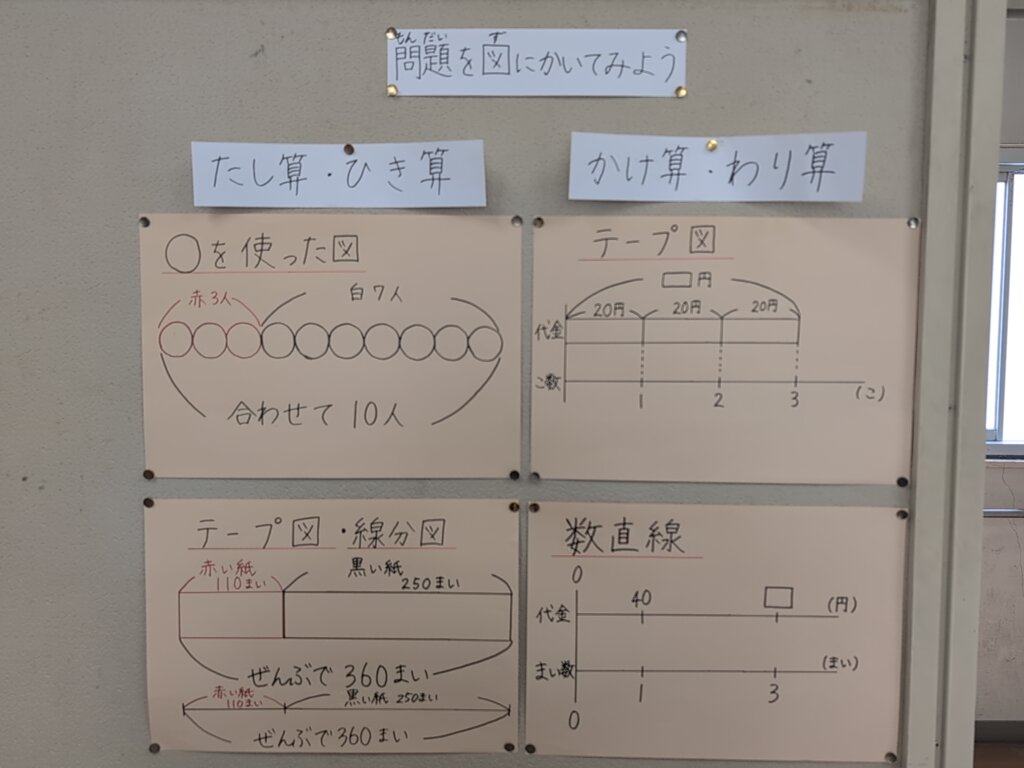 もん だい ず
問題を図にかいてみよう
たし算・ひき算
かけ算・わり算
○を使った図
赤3人
白7人
合わせて 10人
テープ図
□円
20円 20円 20円
代金
こ数
1 2 3 (こ)
テープ図・線分図
赤い紙 黒い紙
110まい 250まい
ぜんぶで 360まい
赤い紙 黒い紙 250まい
110まい
ぜんぶで 360まい
数直線
0
40 □ (円)
代金
まい数 (まい)
1 3
0